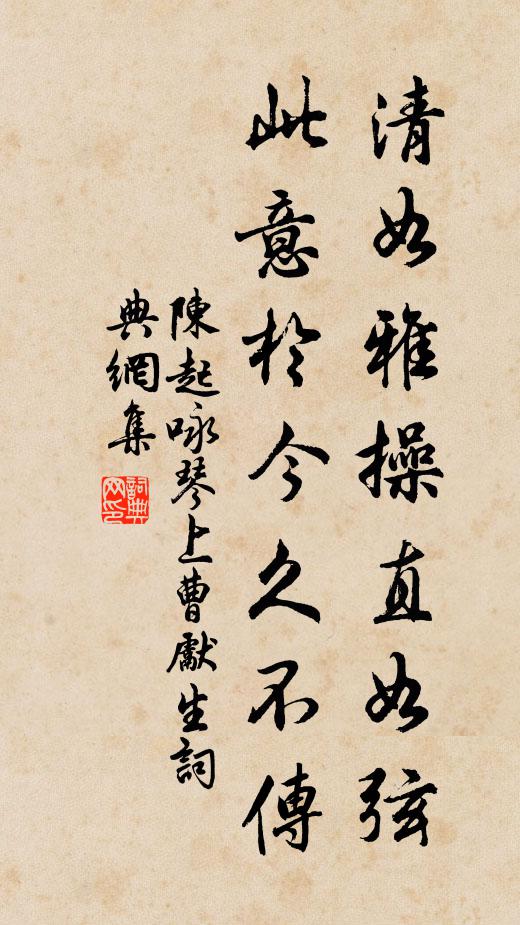 清如雅操直如弦
此意於今久不傳
陳起咏琴上曹獻生詞
典網集
詞典
网印